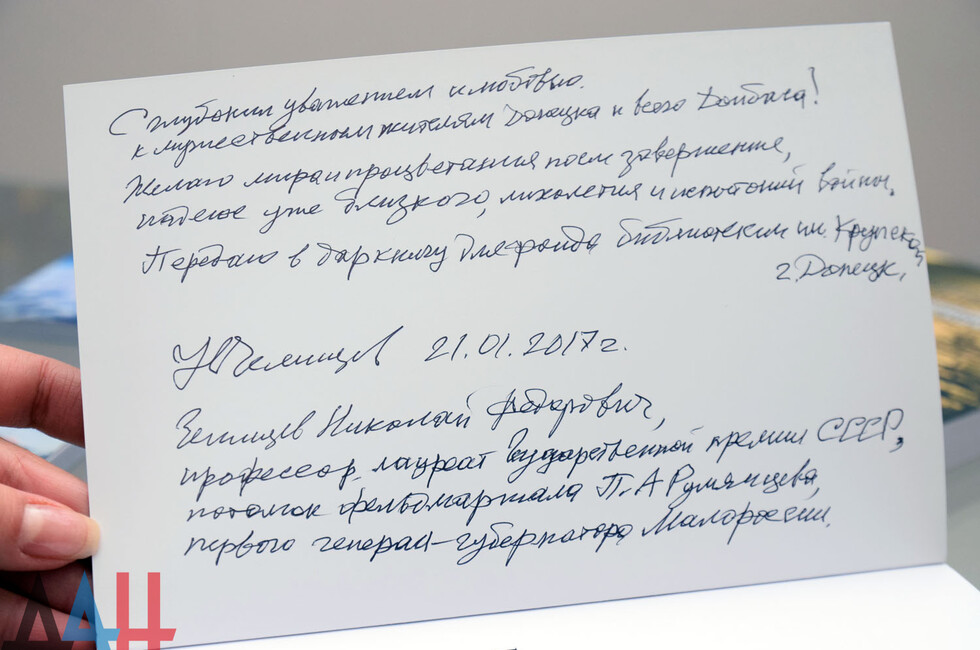 С глубоким уважением и любовью
к мужественным жителям Донецка и всего Донбасса!
Желаю мира и процветания после завершения,
надеюсь уже близкого, лихолетия и испытаний войны.
Передаю в дар книгу для фонда библиотеки им. Крупской
г. Донецк,
21.01.2017 г.
Николай Федорович,
профессор, лауреат Государственной премии СССР,
потомок фельдмаршала П.А Румянцева,
первого генерал-губернатора Малороссии.
ДАН